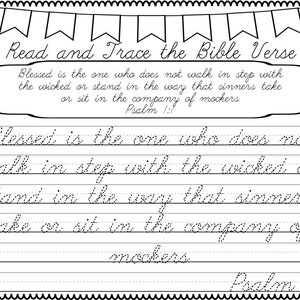 Read and Trace the Bible Verse
Blessed is the one who does not walk in step with
the wicked or stand in the way that sinners take
or sit in the company of mockers
Psalm 1:1
Blessed is the one who does no
alk in step with the wicked o
tand in the way that sinners
ake or sit in the company of
mockers
Psalm